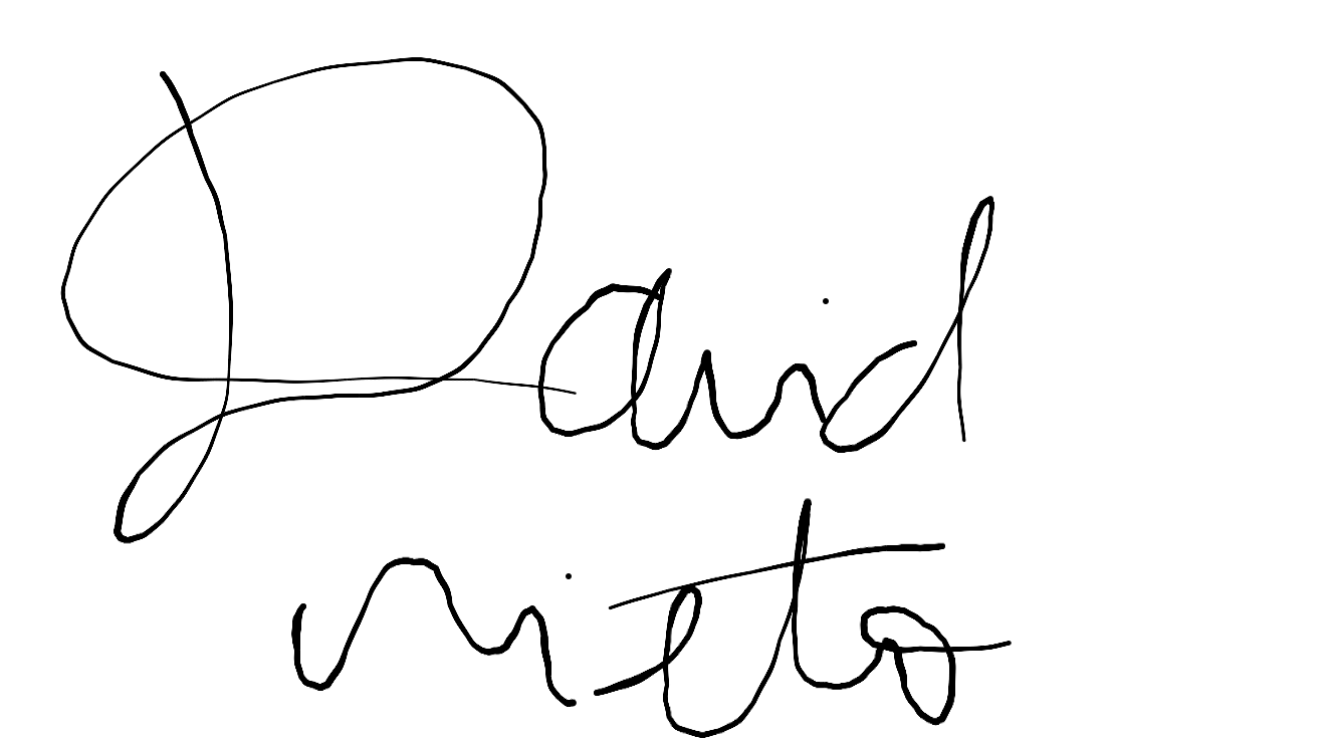 David
nieto